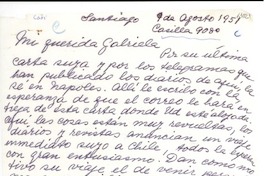 Santiago 9 de Agosto 1951
Casilla 9080
Mi querida Gabriela
Por su última
carta suya y por los telegramas que
han publicado los diarios de aquí, la
sé en Nápoles. Allí le escribo con la
esperanza de que el correo le hará en
trega de esta carta donde Ud esté alojada.
Aquí las cosas están muy revueltas, los
diarios y revistas anuncian un viaje
inmediato suyo a Chile, todos la esperan
con gran entusiasmo. Dan como mo
tivo su viaje, el de venir para